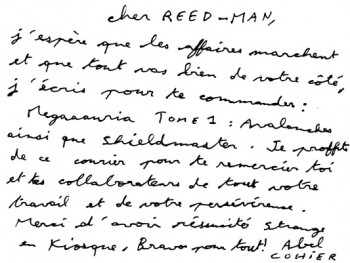 cher REED-MAN,
j'espère que les affaires marchent
et que tout vas bien de votre côté,
j'écris pour te commander :
Megaauria TOME 1 : Avalanches
ainsi que Shieldmaster. Je profite
de ce courrier pour te remercier toi
et tes collaborateurs de tout votre
travail et de votre persévérense.
Merci d'avoir résuscité Strange
en Kiosque, Bravo pour tout! Abel
COHIER